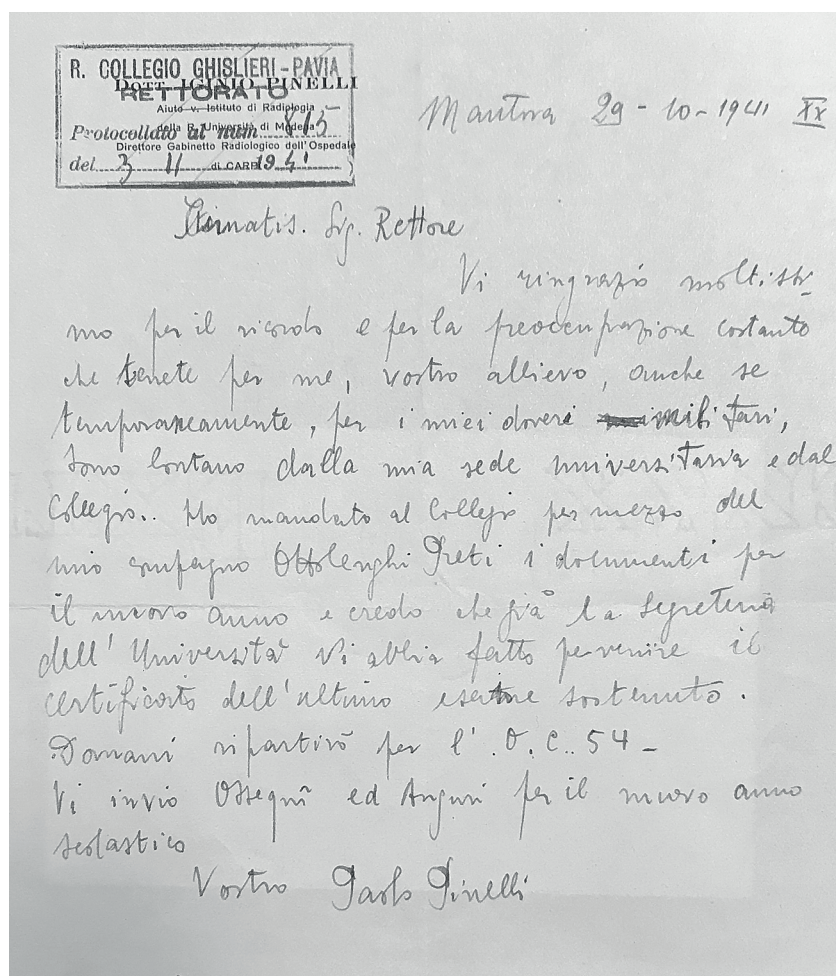 R. COLLEGIO GHISLIERI - PAVIA
DOTT. IGINIO PINELLI
RETTORATO
Aiuto v. Istituto di Radiologia
della R. Università di Modena
Protocollato al num 815
Direttore Gabinetto Radiologico dell'Ospedale
di CARPI
del 3 11 1941
Mantova 29 - 10 - 1941 XX
Stimatis. Sig. Rettore
Vi ringrazio moltissi-
mo per il ricordo e per la preoccupazione costante
che tenete per me, vostro allievo, anche se
temporaneamente, per i miei doveri militari,
sono lontano dalla mia sede universitaria e dal
Collegio.. Ho mandato al Collegio per mezzo del
mio compagno Ottolenghi Preti i documenti per
il nuovo anno e credo che già la Segreteria
dell'Università Vi abbia fatto pervenire il
certificato dell'ultimo esame sostenuto.
Domani ripartirò per l'.O.C..54-
Vi invio Ossequi ed Auguri per il nuovo anno
scolastico
Vostro Paolo Pinelli